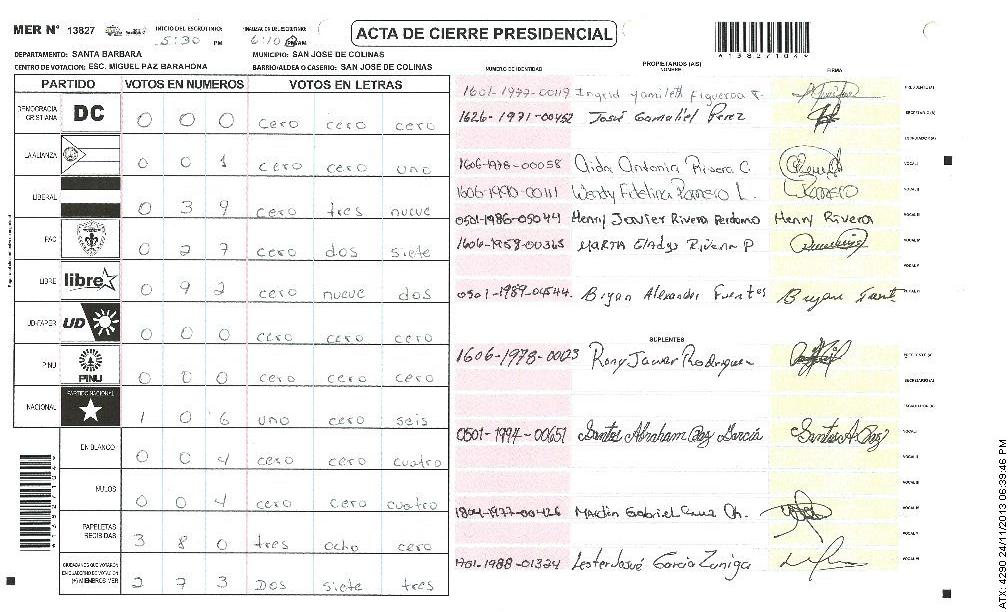 MER Nº 13827 INICIO DEL ESCRUTINIO: 5:30 PM FINALIZACION DEL ESCRUTINIO: 6:10 PM AM
ACTA DE CIERRE PRESIDENCIAL
DEPARTAMENTO: SANTA BARBARA MUNICIPIO: SAN JOSE DE COLINAS
CENTRO DE VOTACION: ESC. MIGUEL PAZ BARAHONA BARRIO/ALDEA O CASERIO: SAN JOSE DE COLINAS
PARTIDO VOTOS EN NUMEROS VOTOS EN LETRAS
DEMOCRACIA CRISTIANA DC 0 0 0 cero cero cero
LA ALIANZA 0 0 1 cero cero uno
LIBERAL 0 3 9 cero tres nueve
PAC 0 2 7 cero dos siete
LIBRE libre 0 9 2 cero nueve dos
UD-FAPER UD 0 0 0 cero cero cero
PINU PINU 0 0 0 cero cero cero
NACIONAL PARTIDO NACIONAL 1 0 6 uno cero seis
EN BLANCO 0 0 4 cero cero cuatro
NULOS 0 0 4 cero cero cuatro
PAPELETAS RECIBIDAS 3 8 0 tres ocho cero
CIUDADANOS QUE VOTARON EN CUADERNO DE VOTACION (+) MIEMBROS MER 2 7 3 Dos siete tres
NUMERO DE IDENTIDAD PROPIETARIOS (AS) NOMBRE FIRMA
1601-1977-00119 Ingrid Yamileth Figueroa F. PRESIDENTE(A)
1626-1971-00452 José Gamaliel Perez SECRETARIO(A)
ESCRUTADOR(A)
1606-1978-00058 Aida Antonia Rivera C. VOCAL I
1606-1990-00111 Wendy Fidelina Romero L. Romero VOCAL II
0501-1986-05044 Henry Javier Rivera Perdomo Henry Rivera VOCAL III
1606-1958-00365 Marta Gladys Rivera P VOCAL IV
VOCAL V
0501-1989-04544 Bryan Alexander Fuentes Bryan VOCAL VI
SUPLENTES
1606-1978-00123 Rony Javier Rodriguez PRESIDENTE (A)
SECRETARIO(A)
ESCRUTADOR(A)
0501-1994-00651 Santos Abraham Paz García Santos A. Paz VOCAL I
VOCAL II
VOCAL III
1804-1977-00426 Martin Gabriel Cruz Ch. VOCAL IV
VOCAL V
1701-1988-01324 Lester Josué Garcia Zuniga VOCAL VI
ATX: 4290 24/11/2013 06:39:46 PM